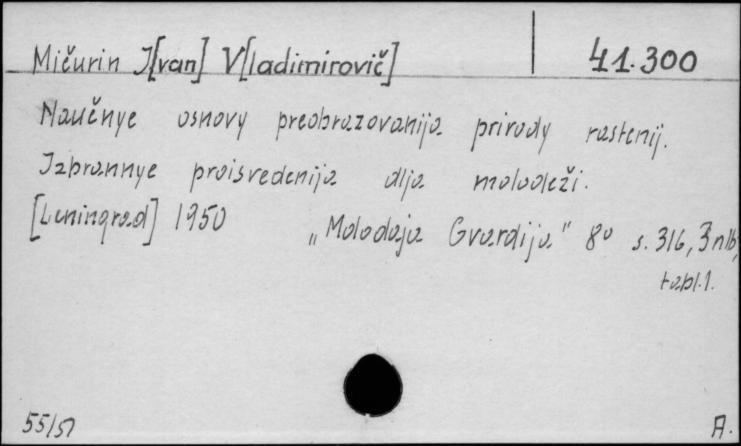 Mičurin I[van] V[ladimirovič] 41.300
Naučnye osnovy preobrazovanija prirody rastenij.
Izbrannye proisvedenija dlja molodeži.
[Leningrad] 1950 „Molodaja Gvardija" 8° s. 316, 3 nlb,
tabl.1.
55/51 A.